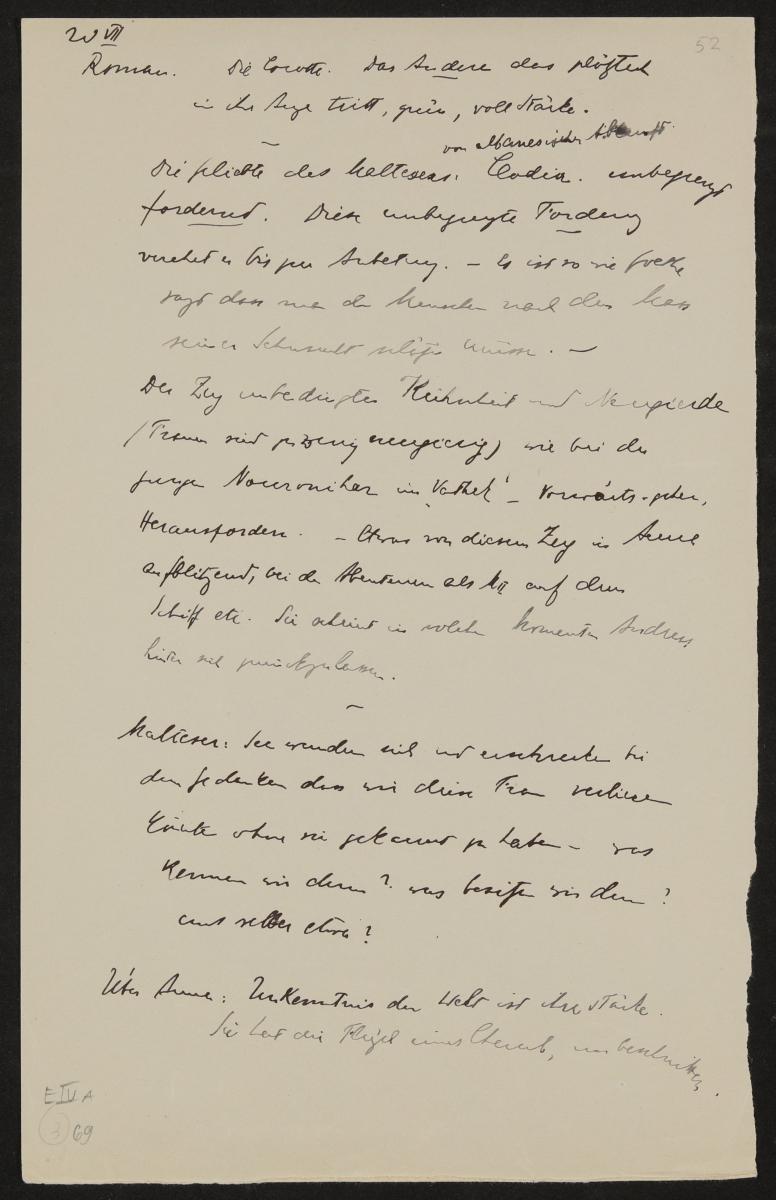 20 VII
52
Roman. Die Cocotte. Das Andere das plötzlich
in ihr Auge tritt, grün, voll Stärke.
von albanesischer Abkunft.
Die Geliebte des Maltesers: Clodia. unbegrenzt
fordernd. Diese unbegrenzte Forderung
verehrt er bis zur Anbetung. – Es ist so wie Goethe
sagt dass man den Menschen nach dem Mass
seiner Sehnsucht schätzen müsse. –
Der Zug unbedingter Kühnheit und Neugierde
(Frauen sind zu wenig neugierig) wie bei der
jungen Nouronihar in 'Vathek' – Vorwärts-gehen,
Herausfordern. – Etwas von diesem Zug in Anna
aufblitzend, bei den Abenteuern als auf dem
Schiff etc. Sie scheint in solchen Momenten Andreas
hinter sich zurückzulassen.
–
Malteser: Sie wenden sich und erschrecken bei
dem Gedanken dass wir diese Frau verlieren
könnten ohne sie gekannt zu haben – was
kennen wir denn? was besitzen wir denn?
uns selber etwa?
Über Anna: Unkenntnis der Welt ist ihre Stärke.
Sie hat die Flügel eines Cherub, unbeschnitten.
E IV A
3 69